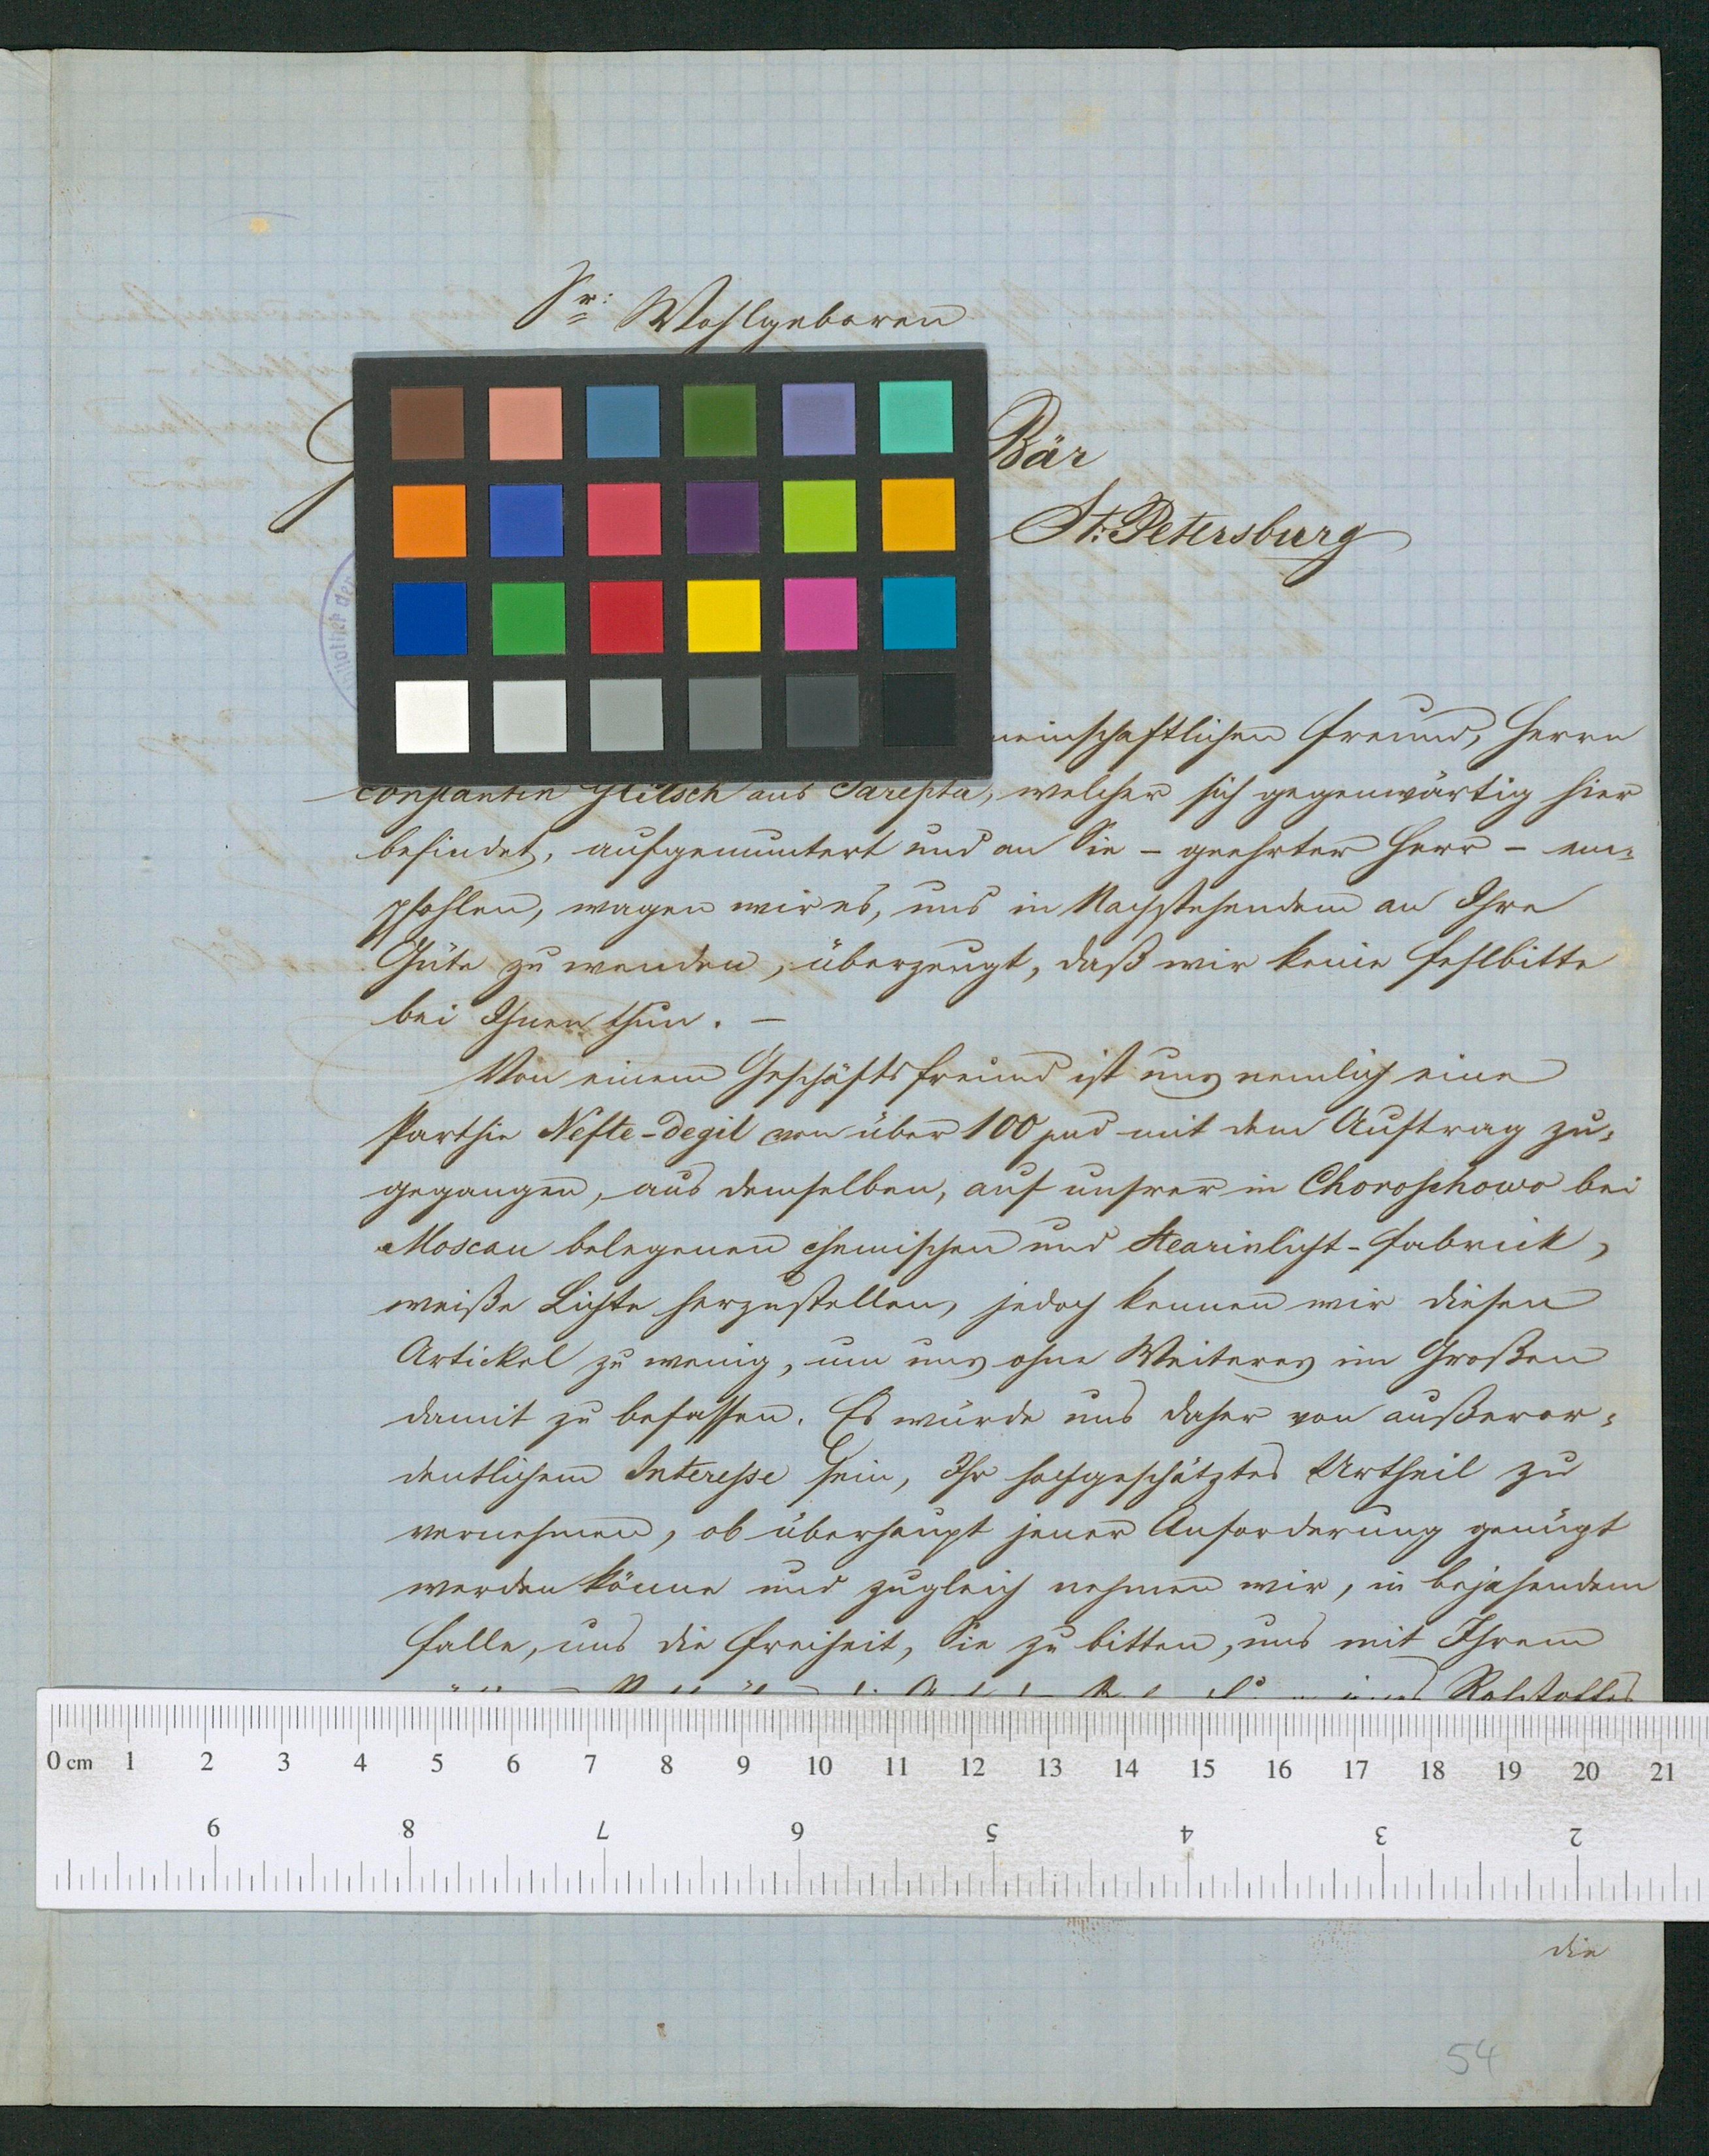 Sr: Wohlgeboren
Bär
St: Petersburg
meinschaftlichen Freund, Herrn
Constantin Glitsch aus Sarepta, welcher sich gegenwärtig hier
befindet, aufgemuntert und an Sie – geehrter Herr – em-
pfohlen, wagen wir es, uns in Nachstehendem an Ihre
Güte zu wenden, überzeugt, daß wir keine Fehlbitte
bei Ihnen thun. –
Von einem Geschäftsfreund ist uns nemlich eine
Parthie Nefte-Degil von über 100 pud mit dem Auftrag zu-
gegangen, aus demselben, auf unsrer in Choroschowo bei
Moscau belegenen chemischen und Stearinlicht-Fabrick,
weiße Lichte herzustellen, jedoch kennen wir diesen
Artickel zu wenig, um uns ohne Weiteres im Großen
damit zu befassen. Es würde uns daher von außeror-
dentlichem Interesse sein, Ihr hochgeschätztes Urtheil zu
vernehmen, ob überhaupt jener Anforderung genügt
werden könne und zugleich nehmen wir, in bejahendem
Falle, uns die Freiheit, Sie zu bitten, uns mit Ihrem
Rohstoffes
0 cm 1 2 3 4 5 6 7 8 9 10 11 12 13 14 15 16 17 18 19 20 21
9 8 7 6 5 4 3 2
die
54